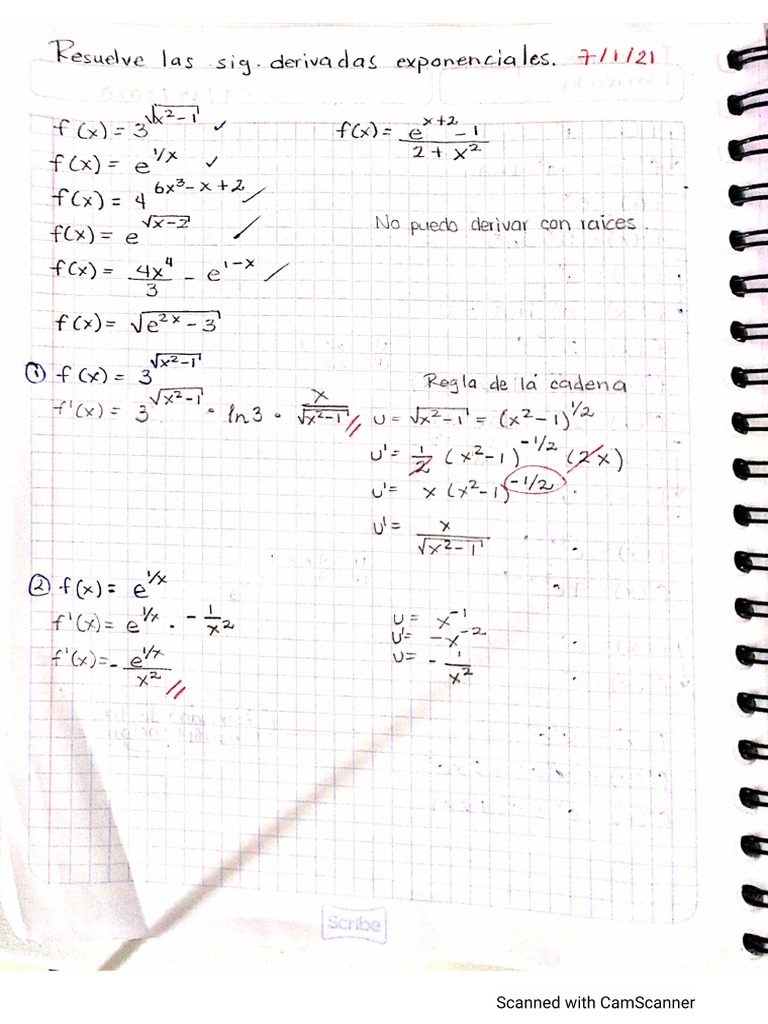 Resuelve las sig. derivadas exponenciales. 7/1/21
f(x) = 3^√(x²-1) ✓
f(x) = e^(1/x) ✓
f(x) = 4^(6x³-x+2) ✓
f(x) = e^√(x-2) ✓
f(x) = 4x⁴/3 - e^(1-x) ✓
f(x) = √(e^(2x) - 3)
f(x) = (e^(x+2) - 1)/(2 + x²)
No puedo derivar con raices.
① f(x) = 3^√(x²-1)
f'(x) = 3^√(x²-1) · ln3 · x/√(x²-1) //
Regla de la cadena
u = √(x²-1) = (x²-1)^(1/2)
u' = 1/2 (x²-1)^(-1/2) (2x)
u' = x (x²-1)^(-1/2)
u' = x/√(x²-1)
② f(x) = e^(1/x)
f'(x) = e^(1/x) · - 1/x²
f'(x) = - e^(1/x)/x² //
u = x^(-1)
u' = -x^(-2)
u = - 1/x²
Scribe
Scanned with CamScanner